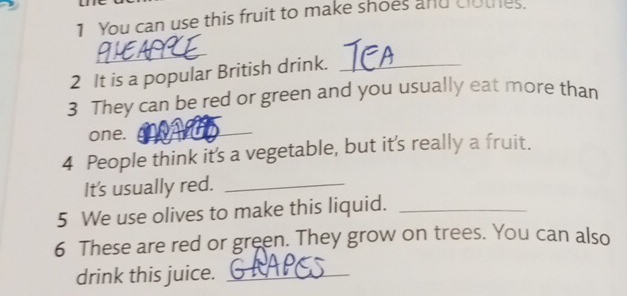 1 You can use this fruit to make shoes and clothes.
PINEAPPLE
2 It is a popular British drink. TEA
3 They can be red or green and you usually eat more than
one.
4 People think it's a vegetable, but it's really a fruit.
It's usually red.
5 We use olives to make this liquid.
6 These are red or green. They grow on trees. You can also
drink this juice. GRAPES